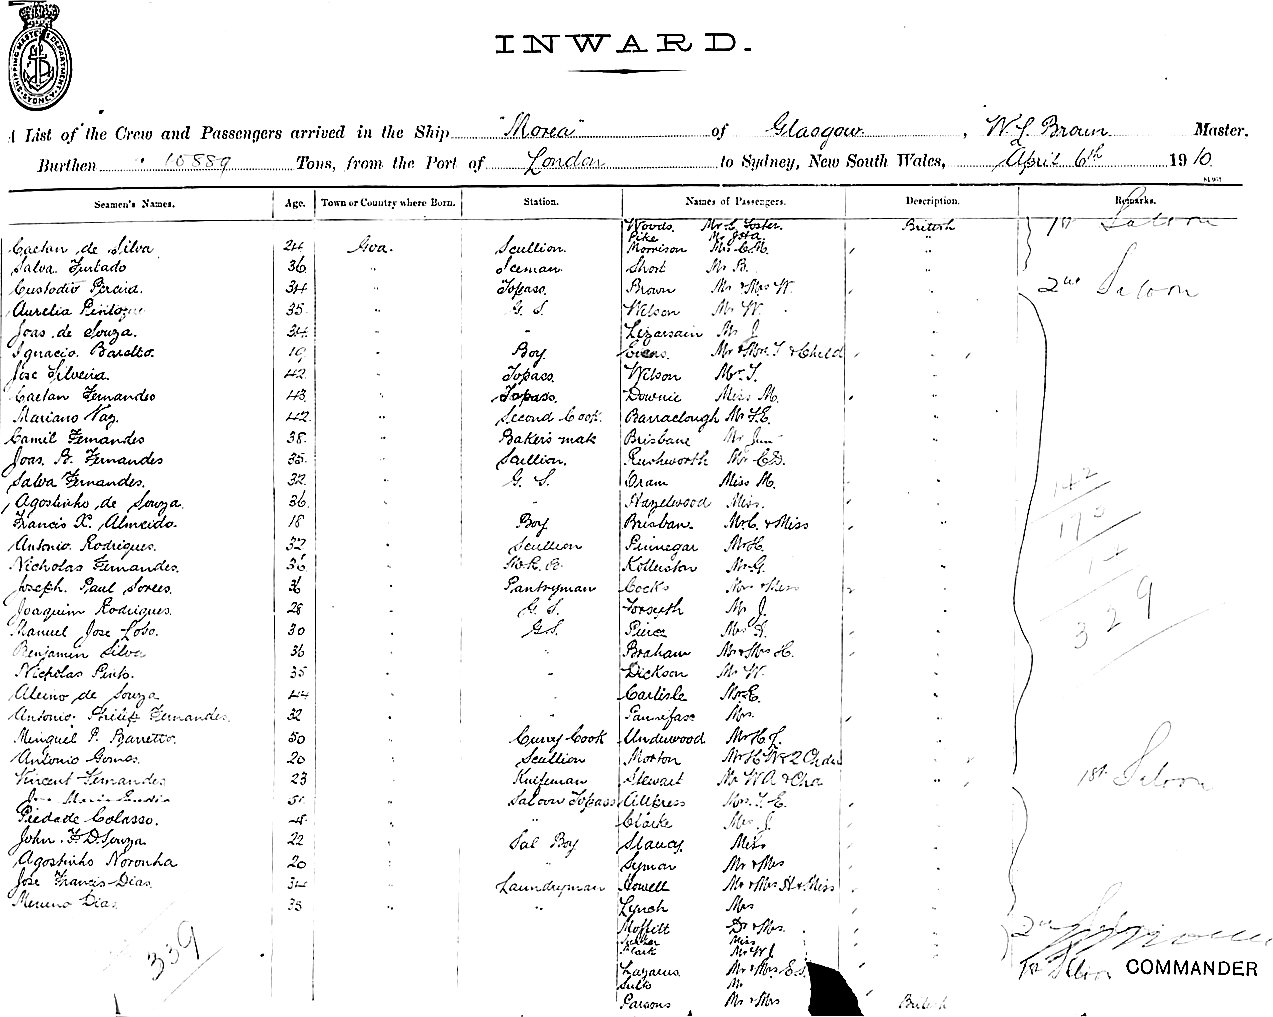 SHIPPING MASTER'S DEPARTMENT SYDNEY
INWARD.
A List of the Crew and Passengers arrived in the Ship "Morea" of Glasgow, W. L. Brown Master.
Burthen 10889 Tons, from the Port of London to Sydney, New South Wales, April 6th 1910
Seamen's Names. Age. Town or Country where Born. Station. Names of Passengers. Description. Remarks.
Woods. Mr C. Foster British 1st Saloon
Pike "
Caetan de Silva 24 Goa. Scullion Morrison Mrs C. M. "
Salva. Furtado 36 " Iceman Short Mr B. "
Custodio 34 " Topass. Brown Mr & Mrs W. " 2nd Saloon
Aurelia 35 " G. S. Wilson Mr W. "
Joas. de Souza. 34 " " Mr J. "
Ignacio. Baretto. 19 " Boy Evans. Mr & Mrs T & Child "
Jose Silveira. 42 " Topass. Wilson Mr. T. "
Caetan Fernandes 43 " Topass. Downie Miss M. "
Mariano Vaz. 42 " Second Cook. Barraclough Mr F. E. "
Camil Fernandes 38 " Baker's mate Brisbane Mr Jun "
Joas. B. Fernandes 35 " Scullion. Rushworth Mr C. D. "
Salva Fernandes. 32 " G. S. Oram Miss M. " 142
Agostinho de Souza. 36 " " Hazelwood Miss. "
Francis X. Almeido. 18 " Boy Brisbane Mr C. & Miss " 173
Antonio. Rodrigues. 32 " Scullion Pinnegar Mr H. "
Nicholas Fernandes. 36 " Mr G. " 14
Joseph. Paul 36 " Pantryman Cocks Mr & Miss "
Joaquim Rodrigues. 28 " G. S. Forsyth Mr J. " 329
Manuel Jose Lobo. 30 " G. S. Pierce "
Benjamin Silva 36 " " Braham Mr & Mrs C. "
Nicholas Pinto. 35 " " Dickson Mr W. "
de Souza 44 " " Carlisle Mr E. "
Antonio. Philip Fernandes. 32 " " Mrs. "
Minguel P. Barretto. 50 " Curry Cook Underwood Mr H J. "
Antonio Gomes. 20 " Scullion Morton "
Vincent Fernandes 23 " Knifeman Stewart Mr W A & " 1st Saloon
51 " Saloon Topass Mrs. T. E. "
Piedade Colasso. " " Clarke Mrs. J. "
John. F. D. Souza 22 " Sal Boy Miss "
Agostinho Noronha 20 " " Mr & Mrs "
Jose Francis Dias. 34 " Laundryman Howell Mr & Mrs H & Miss "
Dias. 35 " " Lynch Mrs "
Moffitt Dr & Mrs. " 2nd
339 Miss "
Clark Mr W J. "
Lazarus. Mr & Mrs E. S. " 1st Saloon COMMANDER
Mr "
Parsons Mr & Mrs British